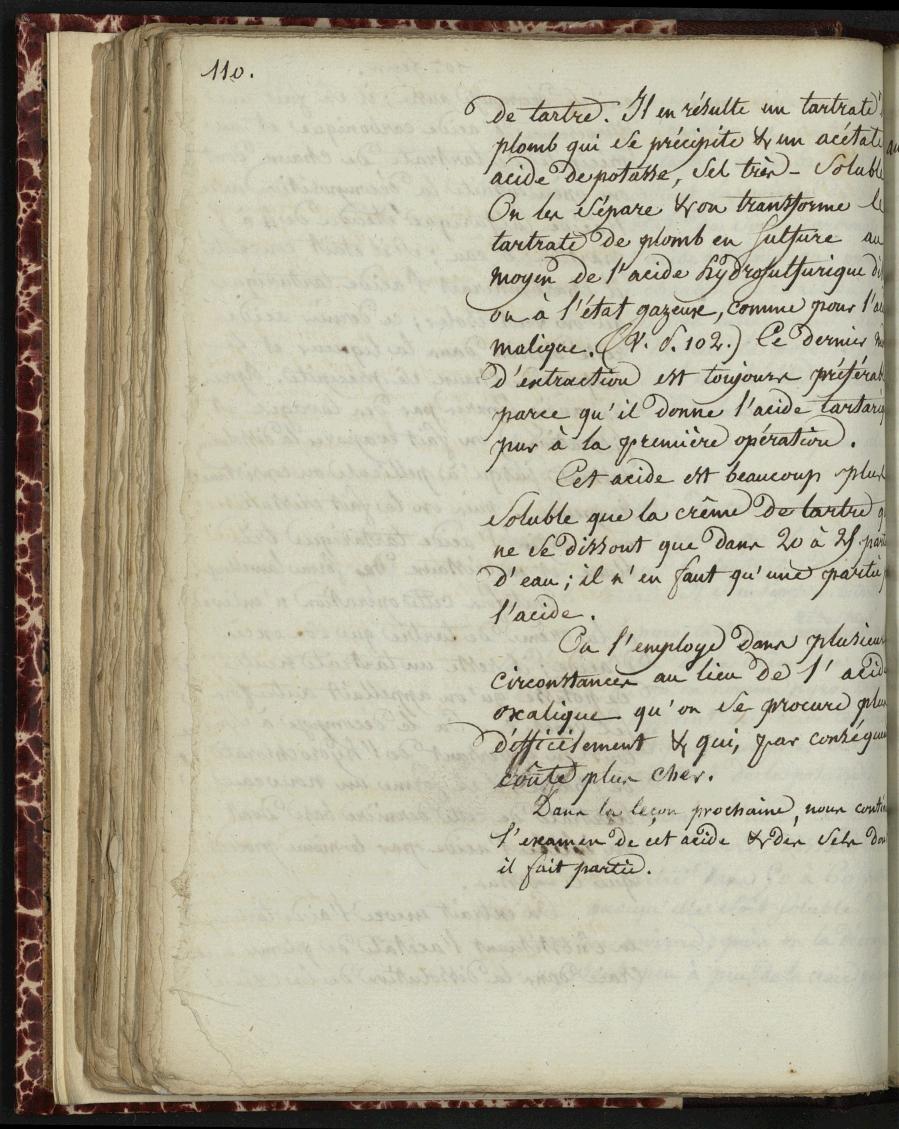 110.
de tartre. Il en résulte un tartrate
plomb qui se précipite & un acétate
acide de potasse, sel très-soluble
On les sépare & on transforme le
tartrate de plomb en sulfure au
moyen de l'acide hydrosulfurique
ou à l'état gazeux, comme pour l'
malique. (V. P. 102.) Ce dernier
d'extraction est toujours préférab
parce qu'il donne l'acide tartariq
pur à la première opération.
Cet acide est beaucoup plus
soluble que la crême de tartre q
ne se dissout que dans 20 à 25 parti
d'eau ; il n'en faut qu'une partie
l'acide.
On l'employe dans plusieur
circonstances au lieu de l'acide
oxalique qu'on se procure plus
difficilement & qui, par conséquen
coûte plus cher.
Dans la leçon prochaine, nous contin
l'examen de cet acide & des sels don
il fait partie.